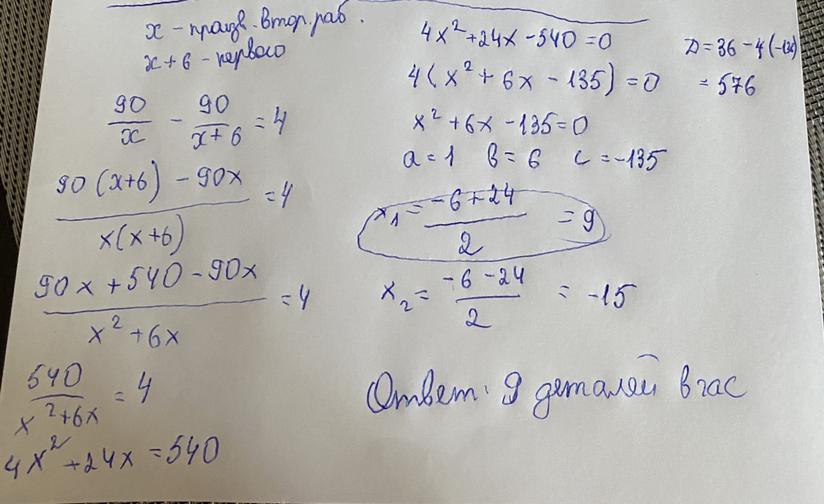 x - произв. втор. раб.
x+6 - первого
90/x - 90/(x+6) = 4
(90(x+6) - 90x)/(x(x+6)) = 4
(90x + 540 - 90x)/(x² + 6x) = 4
540/(x²+6x) = 4
4x² + 24x = 540
4x² + 24x - 540 = 0
4(x² + 6x - 135) = 0
x² + 6x - 135 = 0
a = 1 b = 6 c = -135
x₁ = (-6 + 24)/2 = 9
x₂ = (-6 - 24)/2 = -15
Ответ: 9 деталей в час
= 576